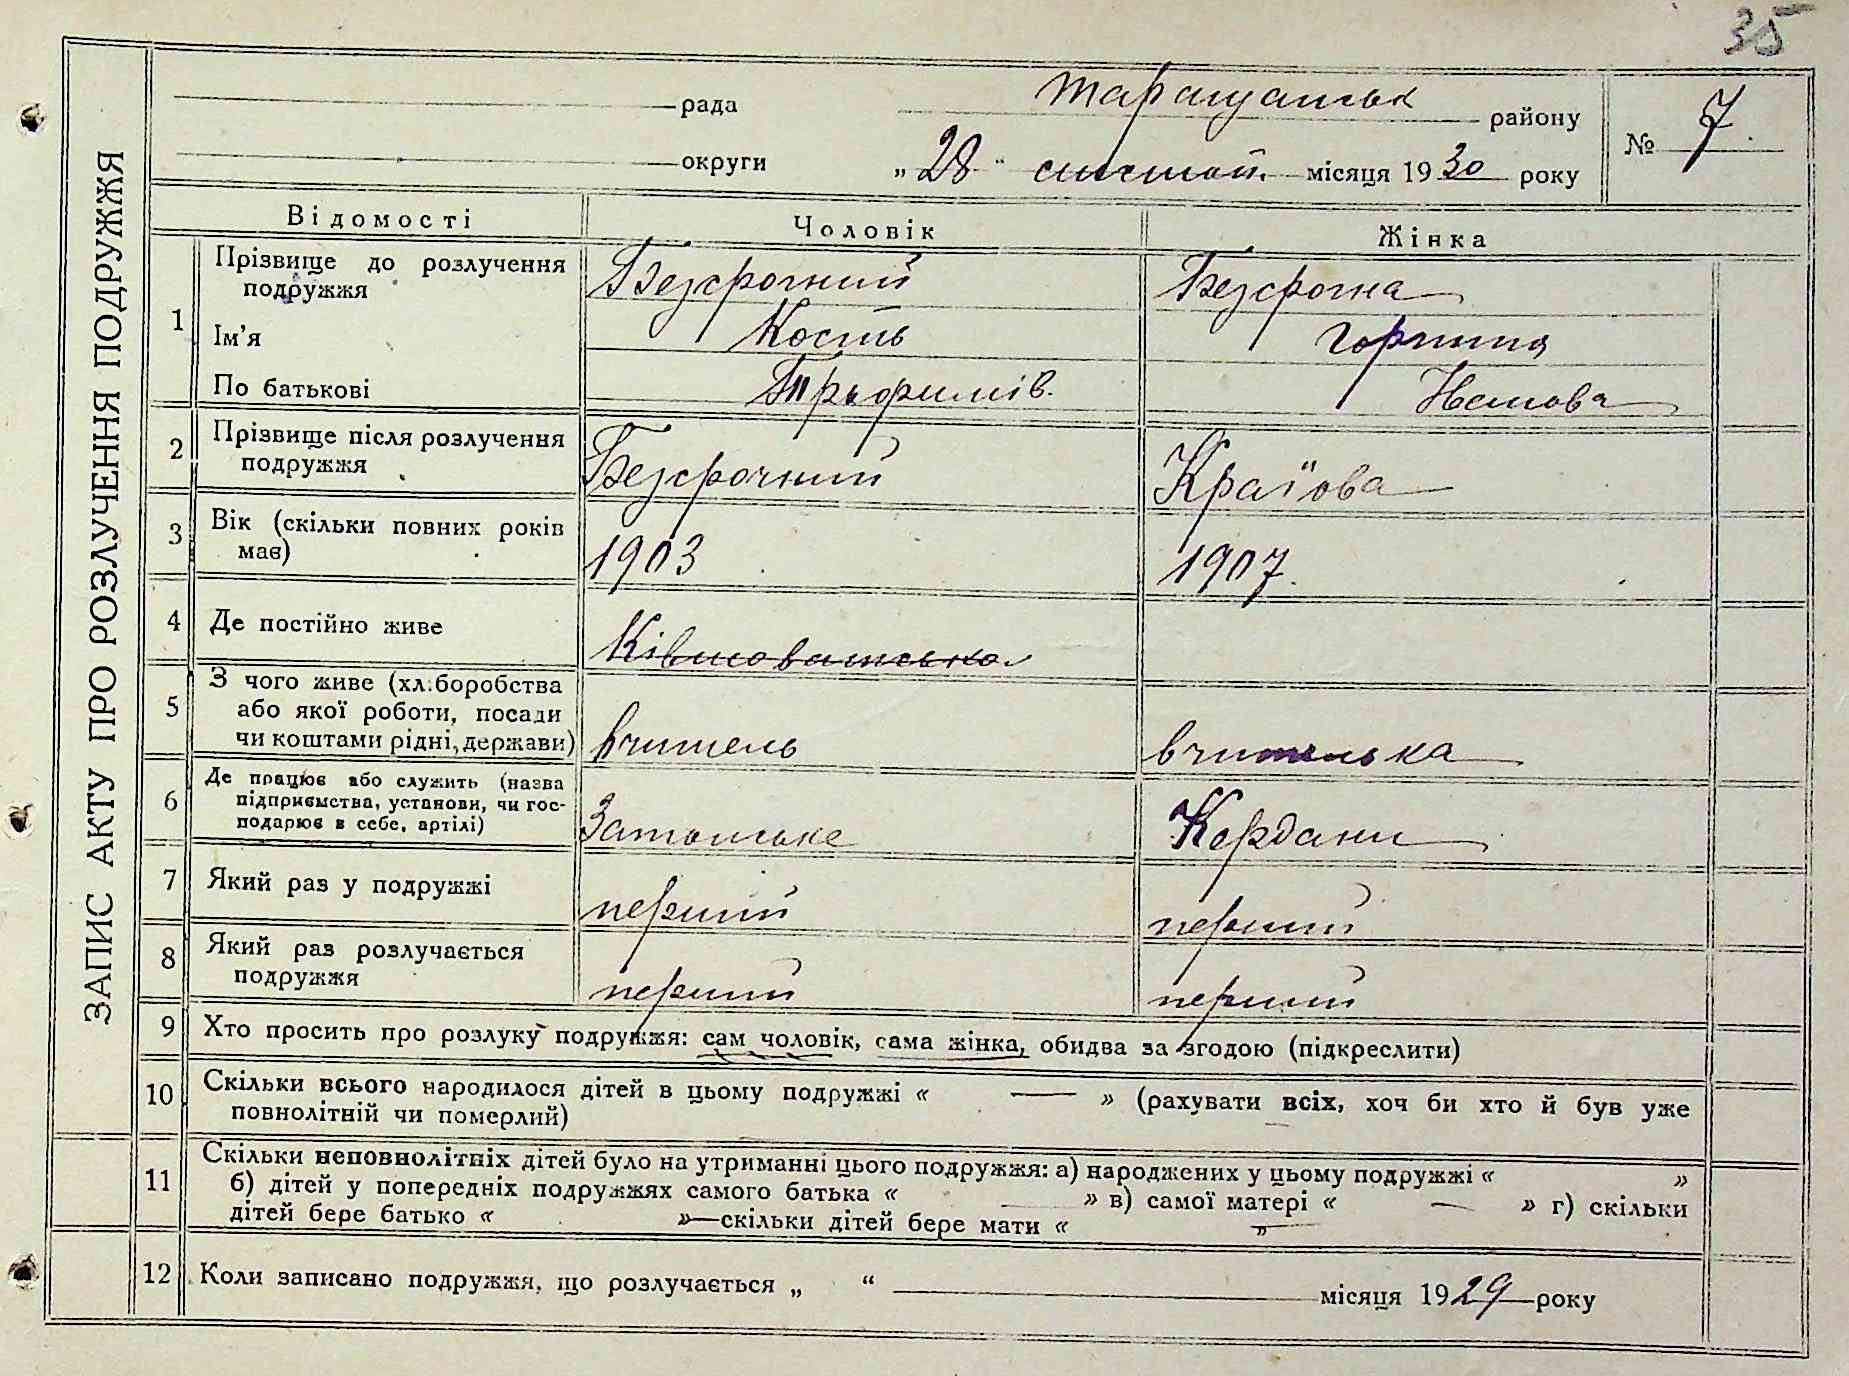 35
ЗАПИС АКТУ ПРО РОЗЛУЧЕННЯ ПОДРУЖЖЯ
рада Таращанськ району
№ 7
округи „28“ місяця 1930 року
Відомості Чоловік Жінка
1 Прізвище до розлучення подружжя Безсрочний Безсрочна
Ім'я Кость Горпина
По батькові Трофимів.
2 Прізвище після розлучення подружжя Безсрочний Краґова
3 Вік (скільки повних років має) 1903 1907.
4 Де постійно живе
5 З чого живе (хліборобства
або якої роботи, посади
чи коштами рідні, держави) вчитель вчителька
6 Де працює або служить (назва
підприємства, установи, чи гос-
подарює в себе, артілі) Кердани
7 Який раз у подружжі перший перший
8 Який раз розлучається подружжя перший перший
9 Хто просить про розлуку подружжя: сам чоловік, сама жінка, обидва за згодою (підкреслити)
10 Скільки всього народилося дітей в цьому подружжі « — » (рахувати всіх, хоч би хто й був уже
повнолітній чи померлий)
11 Скільки неповнолітніх дітей було на утриманні цього подружжя: а) народжених у цьому подружжі « »
б) дітей у попередніх подружжях самого батька « — » в) самої матері « — » г) скільки
дітей бере батько « »—скільки дітей бере мати « — »
12 Коли записано подружжя, що розлучається „ “ місяця 1929 року